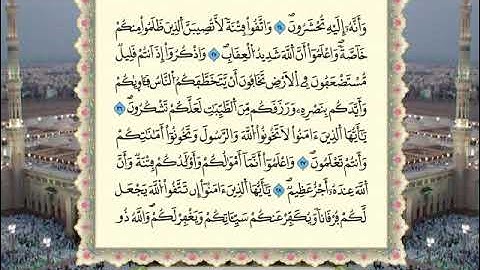 وَأَنَّهُۥٓ إِلَيْهِ تُحْشَرُونَ ٢٤ وَاتَّقُوا۟ فِتْنَةً لَّا تُصِيبَنَّ الَّذِينَ ظَلَمُوا۟ مِنكُمْ
خَآصَّةً ۖ وَاعْلَمُوٓا۟ أَنَّ اللَّهَ شَدِيدُ الْعِقَابِ ٢٥ وَاذْكُرُوٓا۟ إِذْ أَنتُمْ قَلِيلٌ
مُّسْتَضْعَفُونَ فِى الْأَرْضِ تَخَافُونَ أَن يَتَخَطَّفَكُمُ النَّاسُ فَـَٔاوَىٰكُمْ
وَأَيَّدَكُم بِنَصْرِهِۦ وَرَزَقَكُم مِّنَ الطَّيِّبَٰتِ لَعَلَّكُمْ تَشْكُرُونَ ٢٦
يَٰٓأَيُّهَا الَّذِينَ ءَامَنُوا۟ لَا تَخُونُوا۟ اللَّهَ وَالرَّسُولَ وَتَخُونُوٓا۟ أَمَٰنَٰتِكُمْ
وَأَنتُمْ تَعْلَمُونَ ٢٧ وَاعْلَمُوٓا۟ أَنَّمَآ أَمْوَٰلُكُمْ وَأَوْلَٰدُكُمْ فِتْنَةٌ وَأَنَّ
اللَّهَ عِندَهُۥٓ أَجْرٌ عَظِيمٌ ٢٨ يَٰٓأَيُّهَا الَّذِينَ ءَامَنُوٓا۟ إِن تَتَّقُوا۟ اللَّهَ يَجْعَل
لَّكُمْ فُرْقَانًا وَيُكَفِّرْ عَنكُمْ سَيِّـَٔاتِكُمْ وَيَغْفِرْ لَكُمْ ۗ وَاللَّهُ ذُو